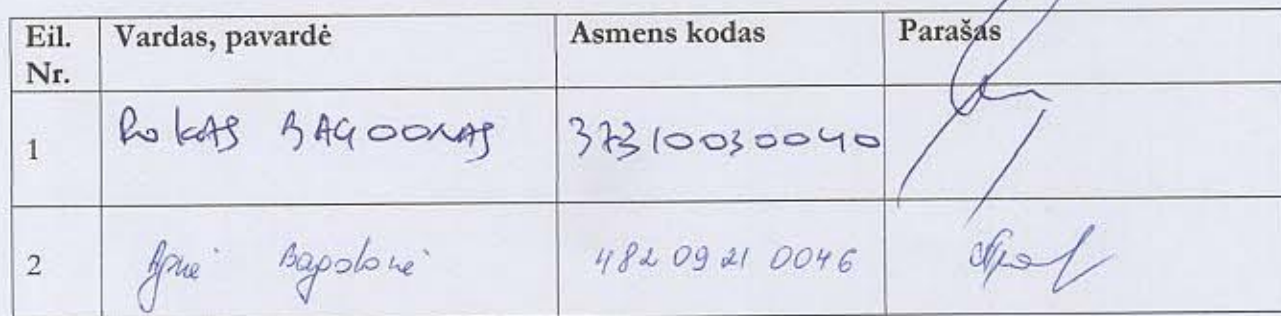 Eil. Nr. Vardas, pavardė Asmens kodas Parašas
1 ROKAS BAGDONAS 37310030040
2 Agnė Bagdonė 48209210046